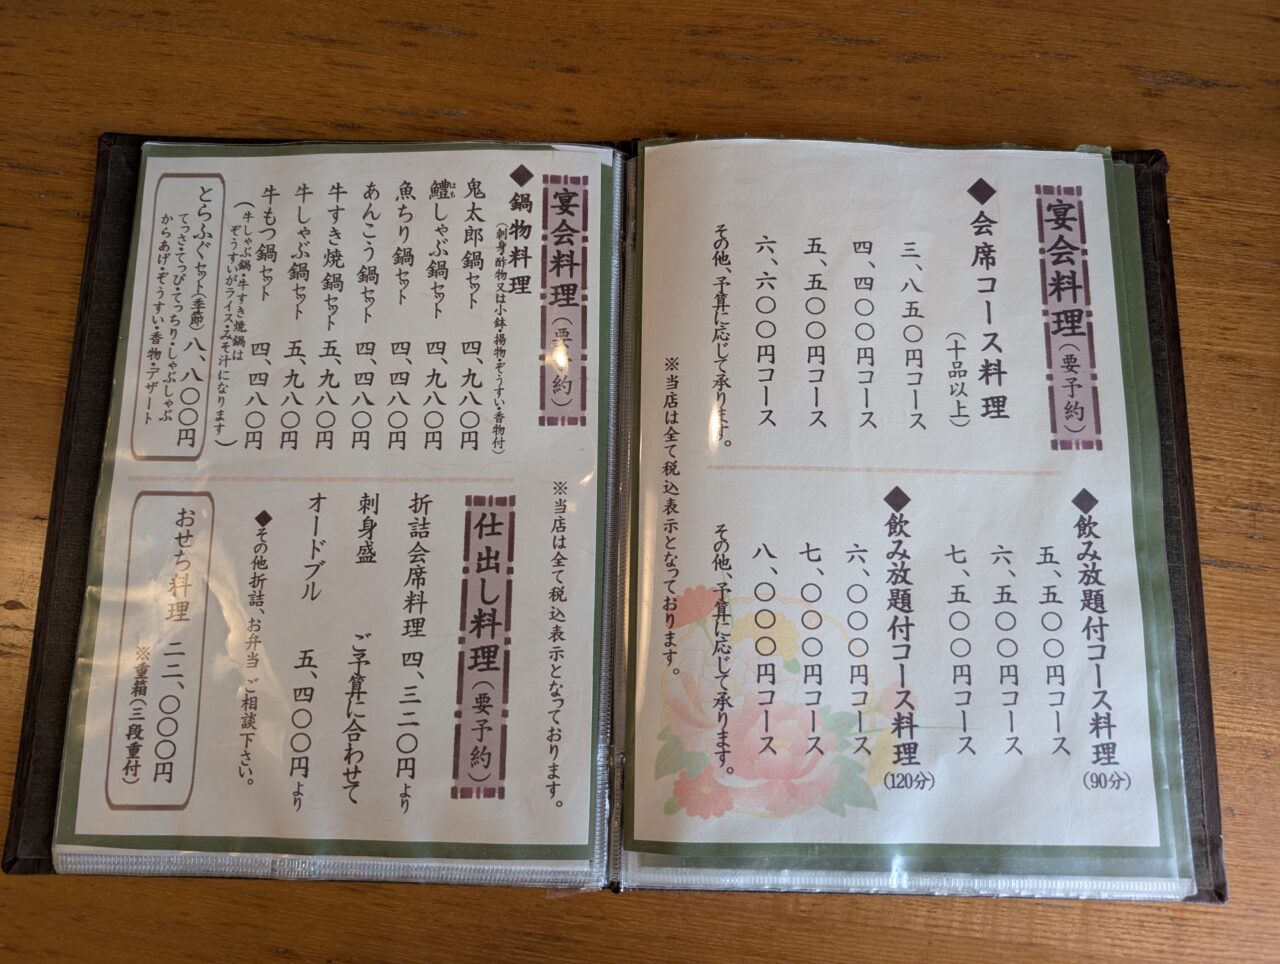 宴会料理（要予約）
◆会席コース料理
（十品以上）
三、八五〇円コース
四、四〇〇円コース
五、五〇〇円コース
六、六〇〇円コース
その他、予算に応じて承ります。
◆飲み放題付コース料理
(90分)
五、五〇〇円コース
六、五〇〇円コース
七、五〇〇円コース
◆飲み放題付コース料理
(120分)
六、〇〇〇円コース
七、〇〇〇円コース
八、〇〇〇円コース
その他、予算に応じて承ります。
※当店は全て税込表示となっております。
宴会料理（要予約）
◆鍋物料理
（刺身・酢物又は小鉢・揚物・ぞうすい・香物付）
鬼太郎鍋セット 四、九八〇円
鱧しゃぶ鍋セット 四、九八〇円
はも
魚ちり鍋セット 四、四八〇円
あんこう鍋セット 四、四八〇円
牛すき焼鍋セット 五、九八〇円
牛しゃぶ鍋セット 五、九八〇円
牛もつ鍋セット 四、四八〇円
（牛しゃぶ鍋・牛すき焼鍋は
ぞうすいがライス・みそ汁になります）
とらふぐセット（季節） 八、八〇〇円
てっさ・てっぴ・てっちり・しゃぶしゃぶ
からあげ・ぞうすい・香物・デザート
※当店は全て税込表示となっております。
仕出し料理（要予約）
折詰会席料理 四、三二〇円より
刺身盛 ご予算に合わせて
オードブル 五、四〇〇円より
◆その他折詰、お弁当 ご相談下さい。
おせち料理 二二、〇〇〇円
※重箱（三段重付）